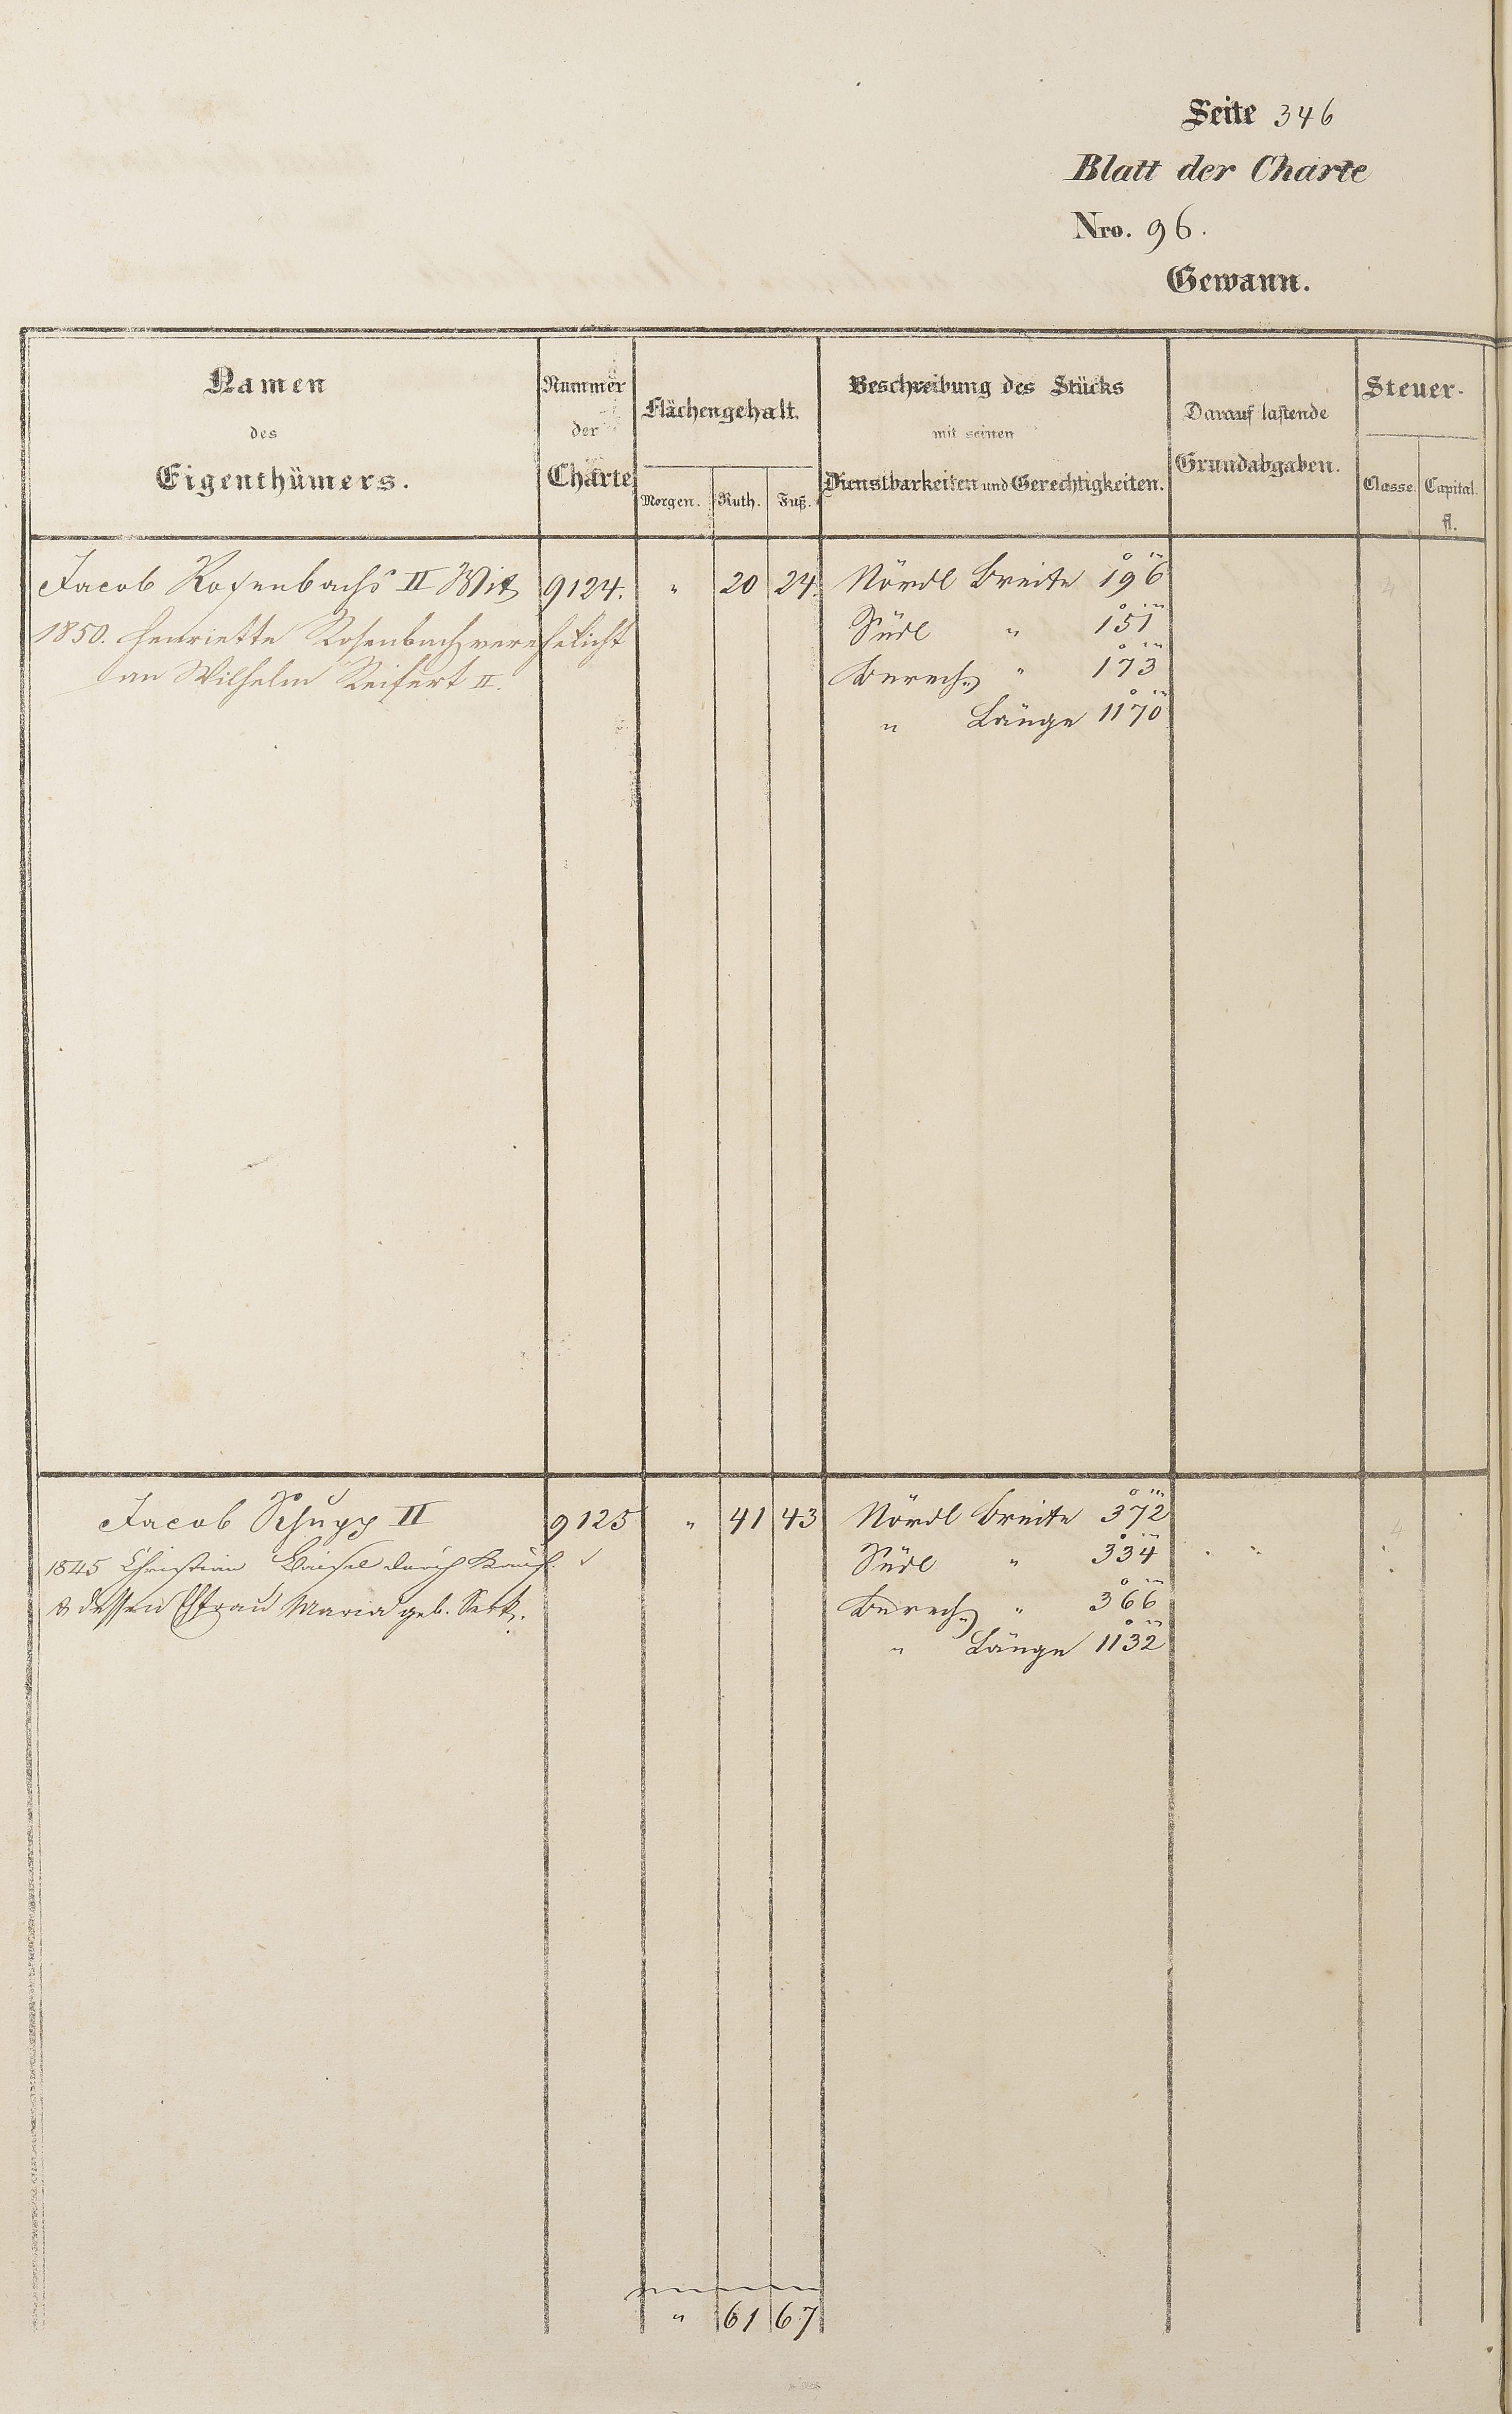 Seite 346
Blatt der Charte
Nro. 96.
Gewann.
Namen des Eigenthümers.
Nummer der Charte
Flächengehalt.
Morgen. Ruth. Fuß.
Beschreibung des Stücks mit seinen Dienstbarkeiten und Gerechtigkeiten.
Darauf lastende Grundabgaben.
Steuer-
Classe. Capital. fl.
Jacob Rosenbachs II Wit 9124. " 20 24. Nördl Breite 196 4
1850. Henriette Rosenbach, verehelicht Südl " 151
an Wilhelm Reifert II. Berech " 173
" Länge 1170
Jacob Schupp II 9125 " 41 43 Nördl Breite 372 4
1845 Christian durch Kauf. Südl " 334
& dessen Ehfrau Maria geb. Berech " 366
" Länge 1132
" 61 67